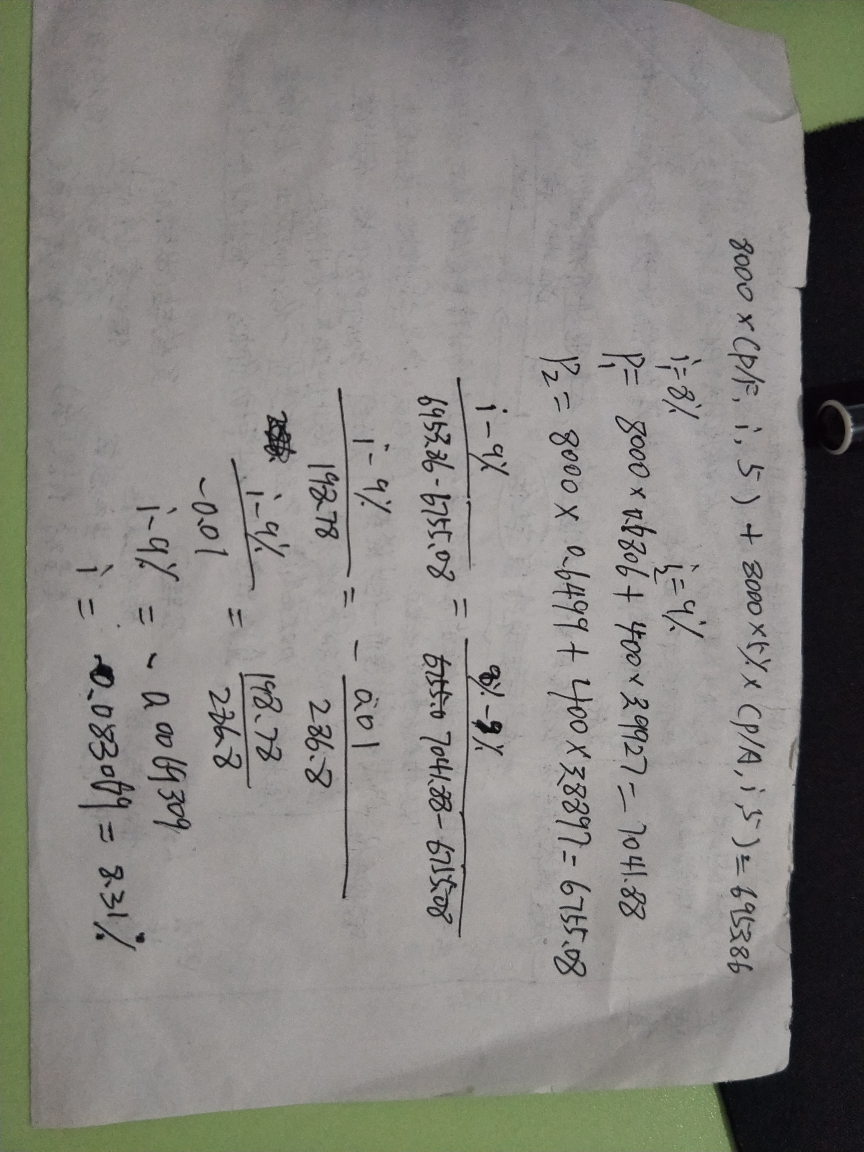 8000 × (P/F, i, 5) + 8000×5%×(P/A, i, 5) = 6953.86
i₁=8% i₂=9%
P₁= 8000 × 0.6806 + 400 × 3.9927 = 7041.88
P₂ = 8000 × 0.6499 + 400 × 3.8897 = 6755.08
i-9% / 6953.86-6755.08 = 8%-9% / 7041.88-6755.08
i-9% / 198.78 = - 0.01 / 286.8
i-9% / -0.01 = 198.78 / 286.8
i-9% = -0.0069309
i = 0.083069 = 8.31%